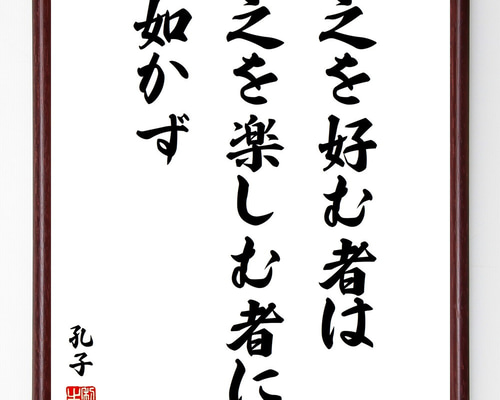 之を好む者は
之を楽しむ者に
如かず
孔子